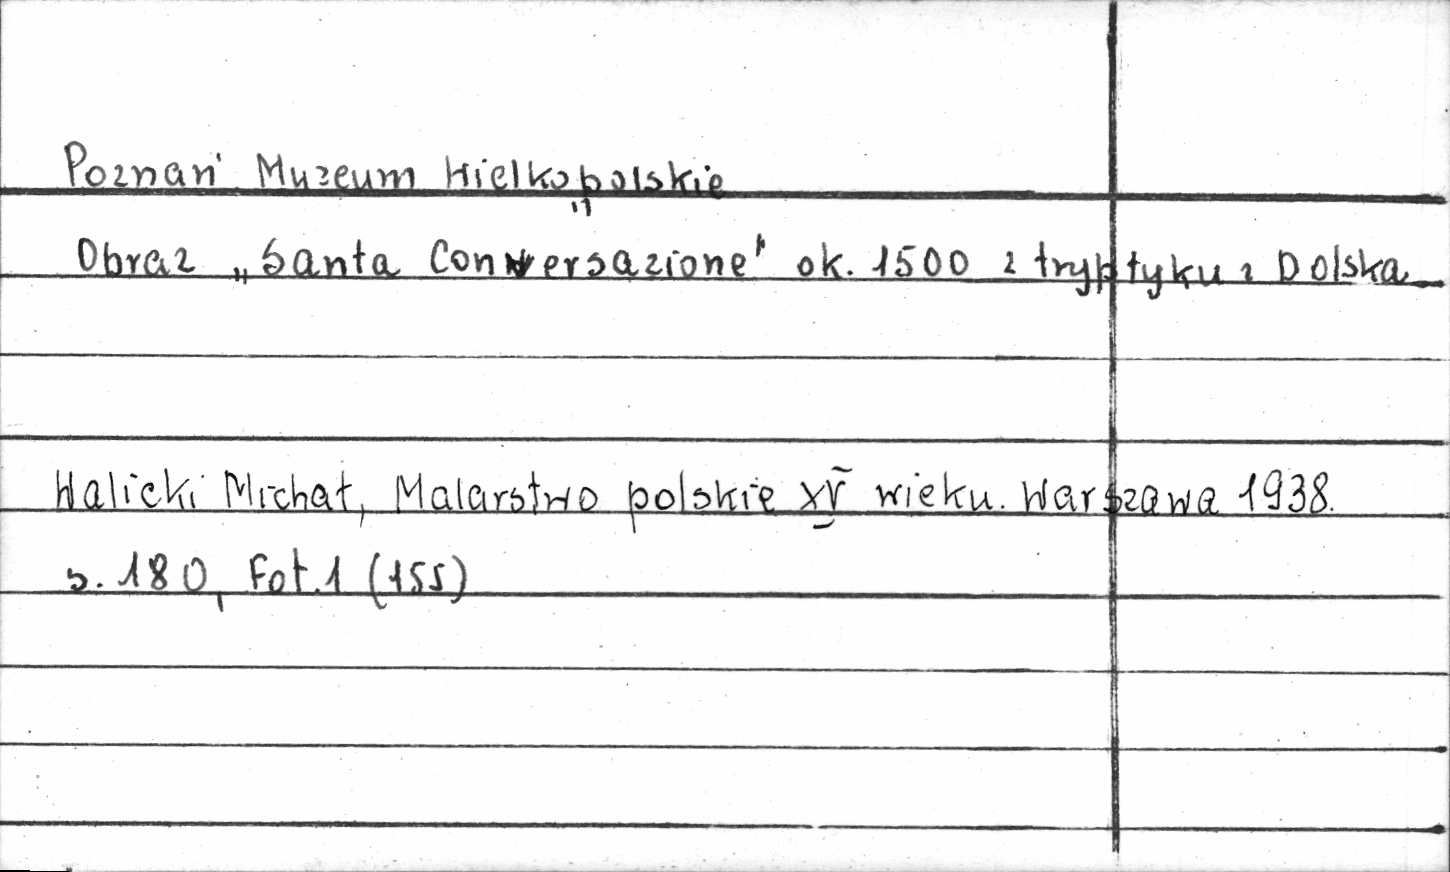 Poznań Muzeum Wielkopolskie
Obraz „Santa Conversazione" ok. 1500 z tryptyku z Dolska
Walicki Michał, Malarstwo polskie XV wieku. Warszawa 1938.
s. 180, Fot. 1 (155)